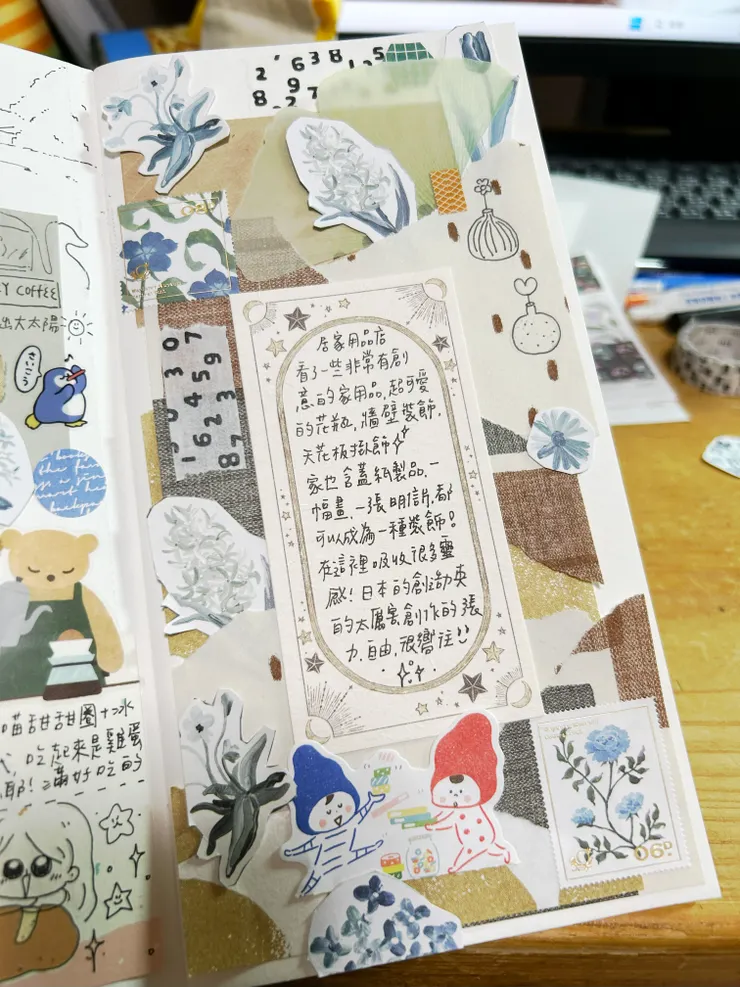 Y COFFEE
出大太陽
さいこう
喵甜甜圈+冰
吃起來是雞蛋
耶!滿好吃的
2 6 3 8
8 9
居家用品店
看了一些非常有創
意的家用品,超可愛
的花瓶,牆壁裝飾,
天花板掛飾
家也含蓋紙製品,一
幅畫、一張明信片,都
可以成為一種裝飾。
在這裡吸收很多靈
感!日本的創造力真
的太厲害,創作的張
力,自由,很嚮往!!
06D